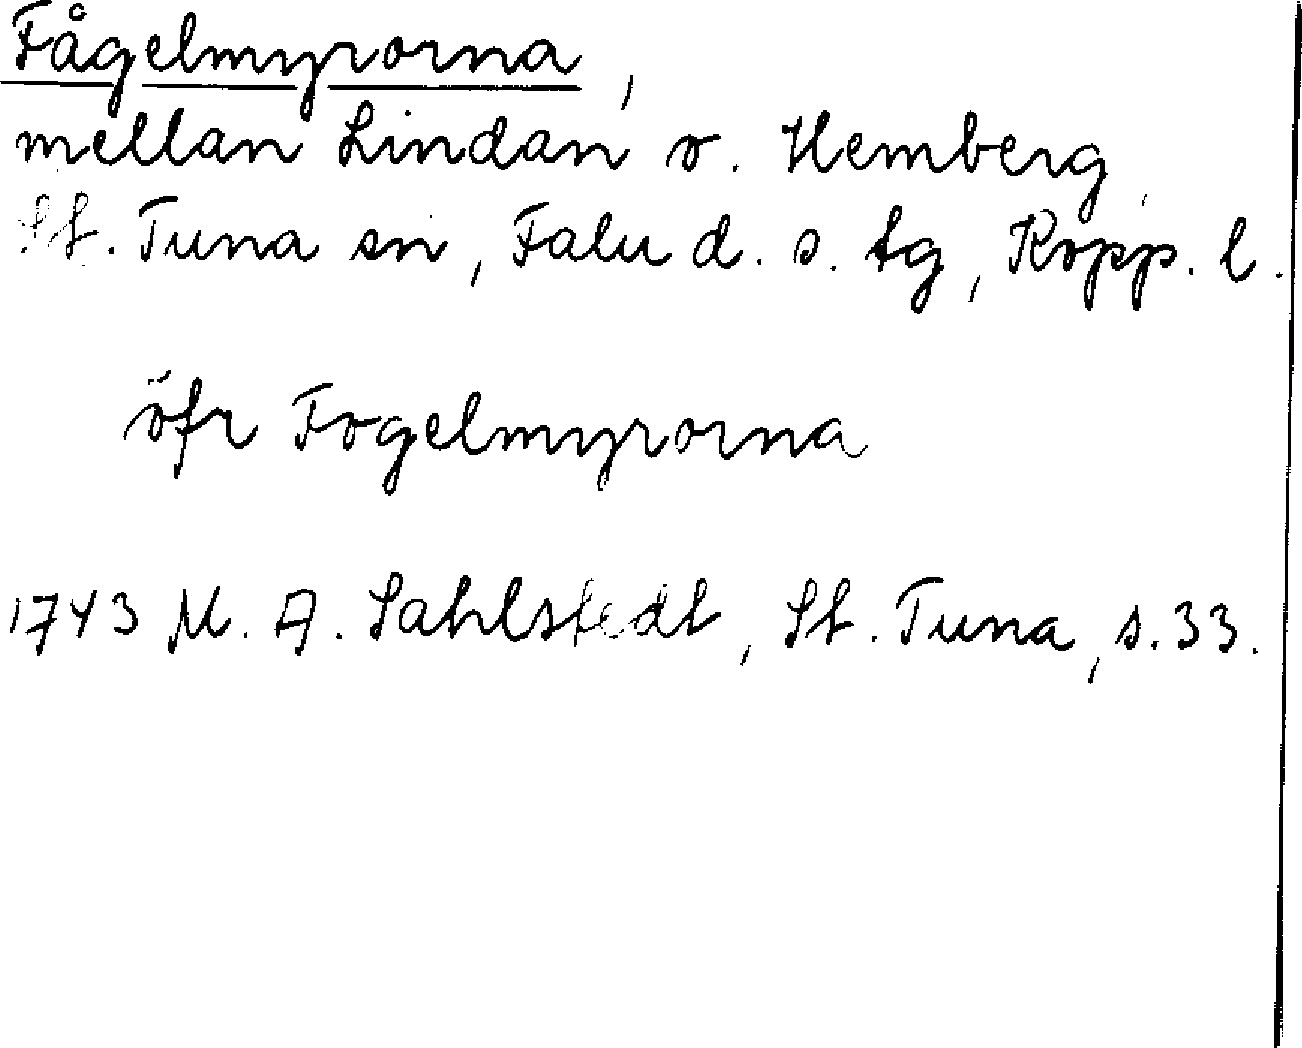 Fågelmyrorna,
mellan Lindan o. Hemberg,
St. Tuna sn, Falu d. s. tg, Kopp. l.
öfr Fogelmyrorna
1743 M. A. Sahlstedt, St. Tuna, s. 33.